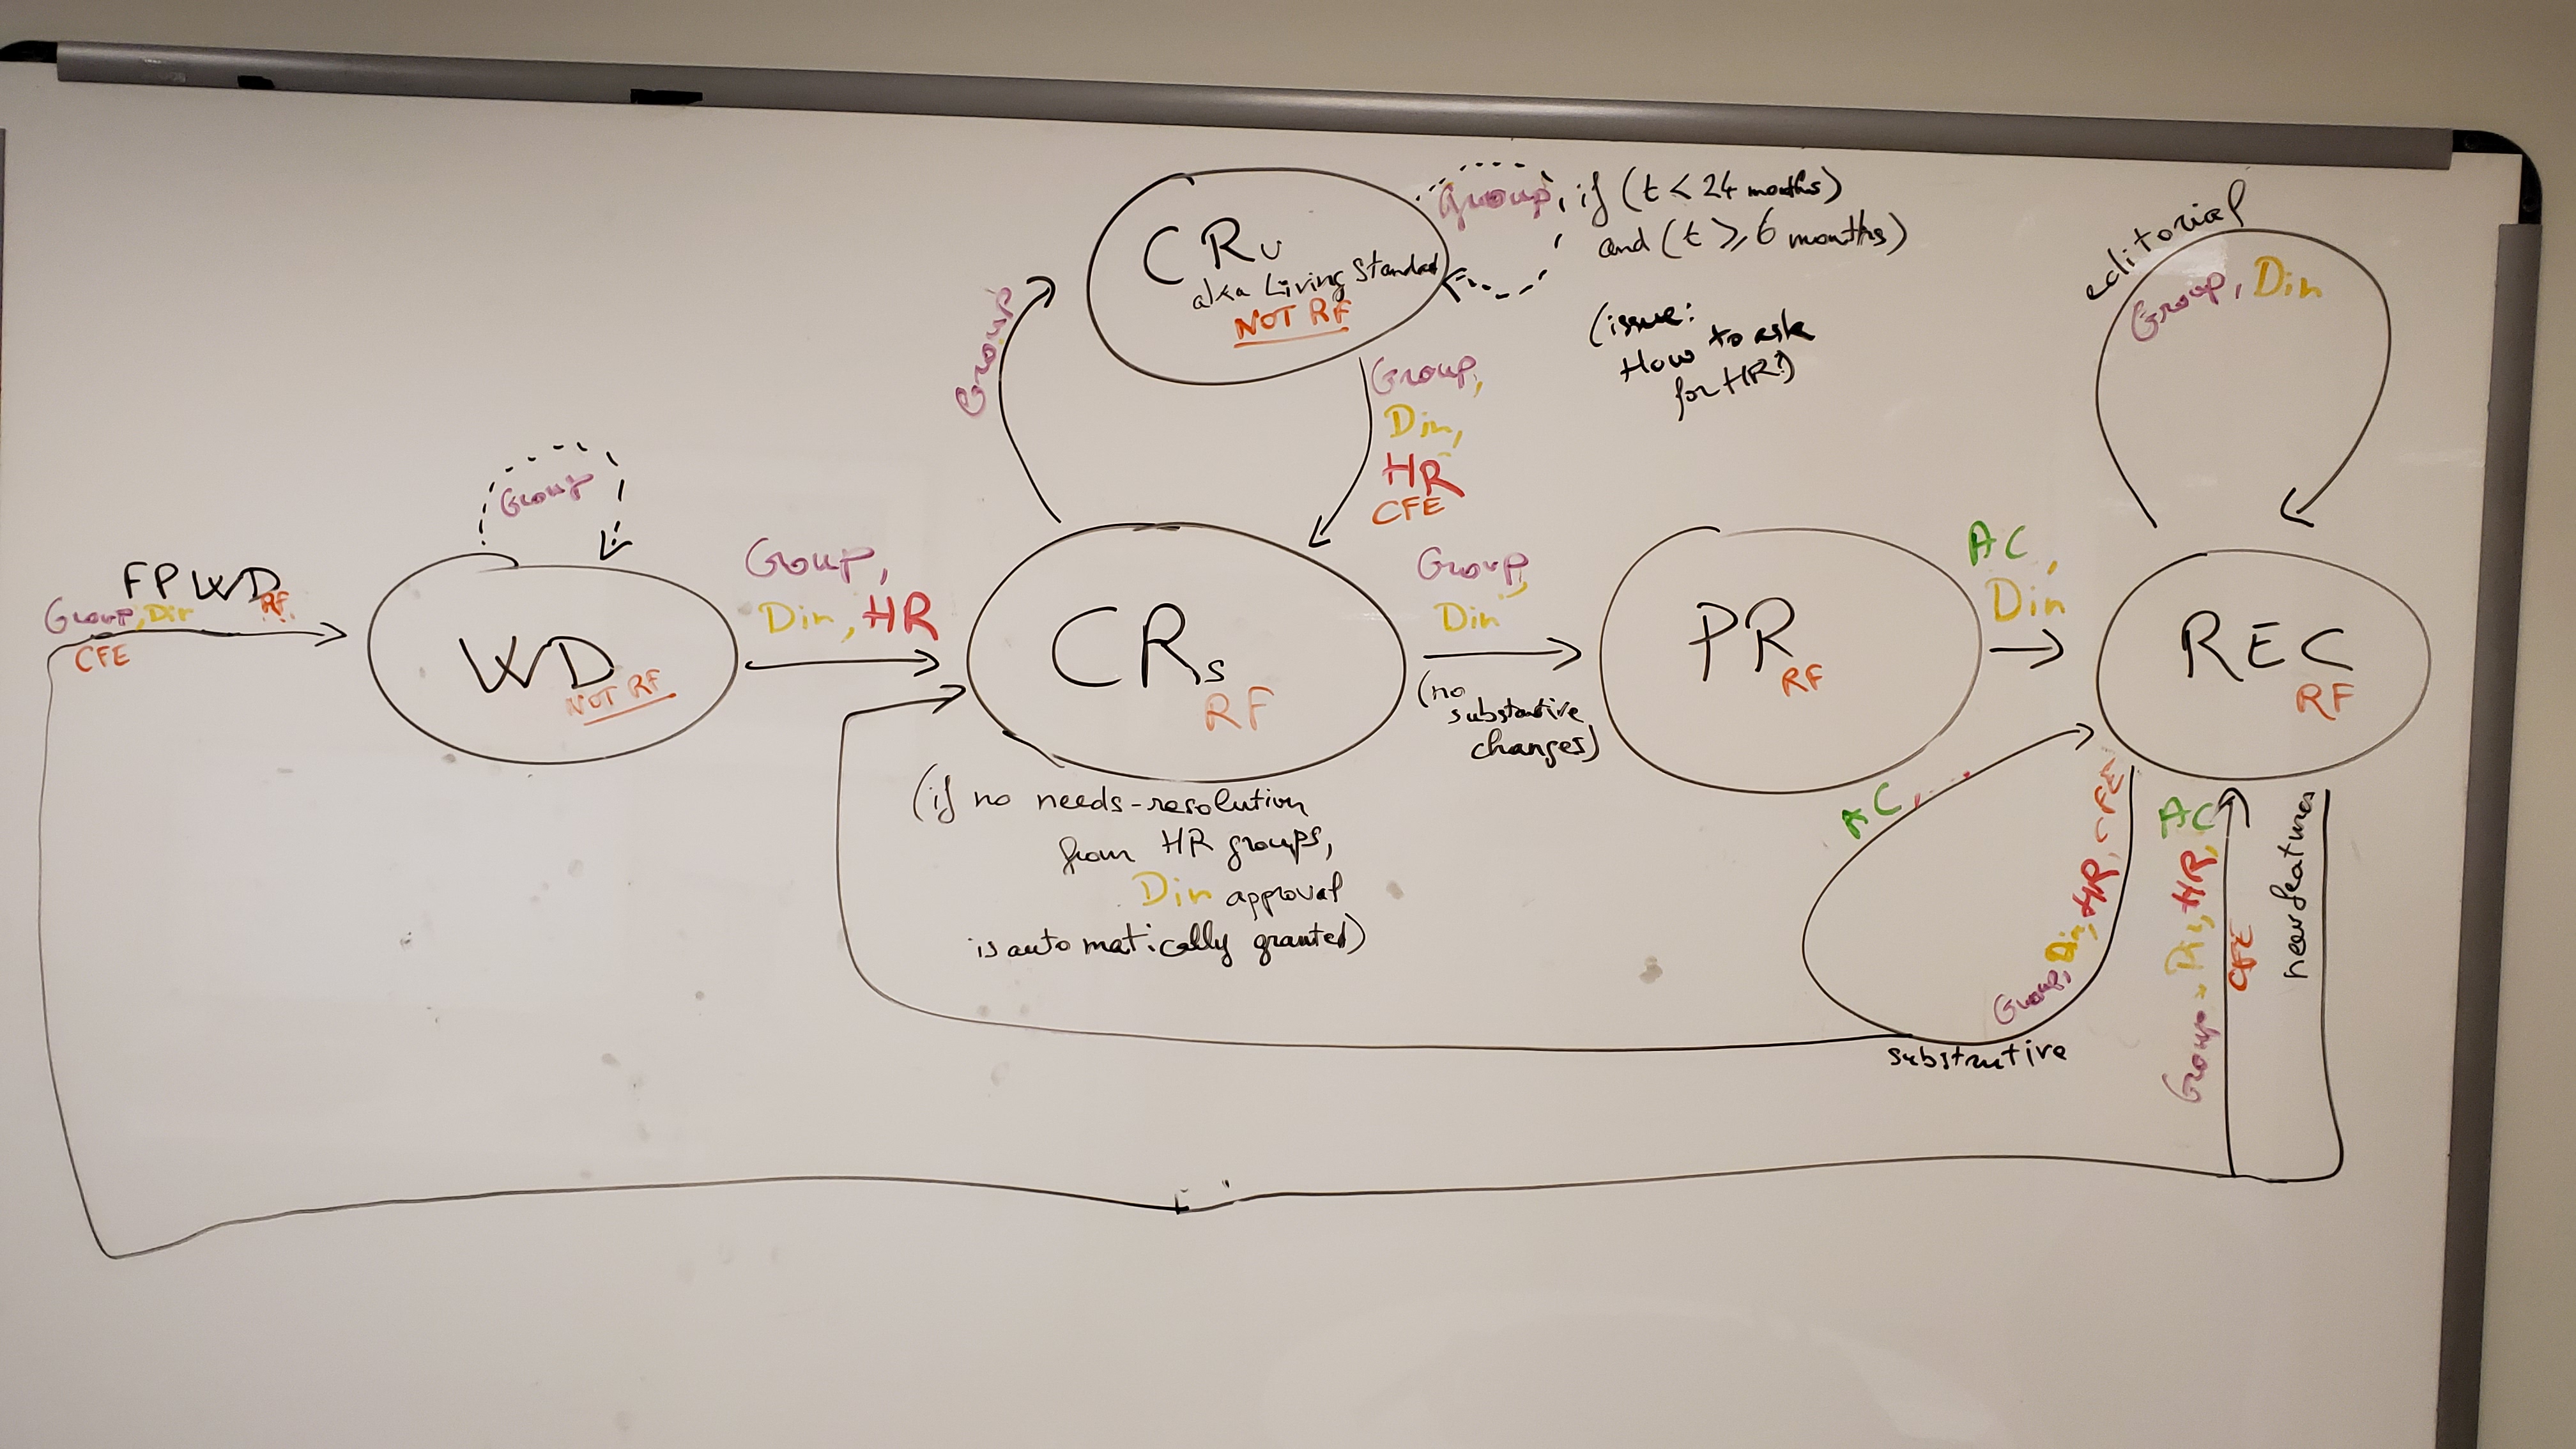 Group, if (t < 24 months)
and (t ⩾ 6 months)
CRu
aka Living Standard
NOT RF
(issue:
How to ask
for HR?)
editorial
Group, Dir
Group
Group,
Dir,
HR
CFE
Group
FPWD RF
Group, Dir
CFE
WD
NOT RF
Group,
Dir, HR
CRs
RF
Group,
Dir
(no
substantive
changes)
PR
RF
AC,
Dir
REC
RF
(if no needs-resolution
from HR groups,
Dir approval
is automatically granted)
AC,
Group, Dir, HR, CFE
substantive
Group, Dir, HR, AC
CFE
new features